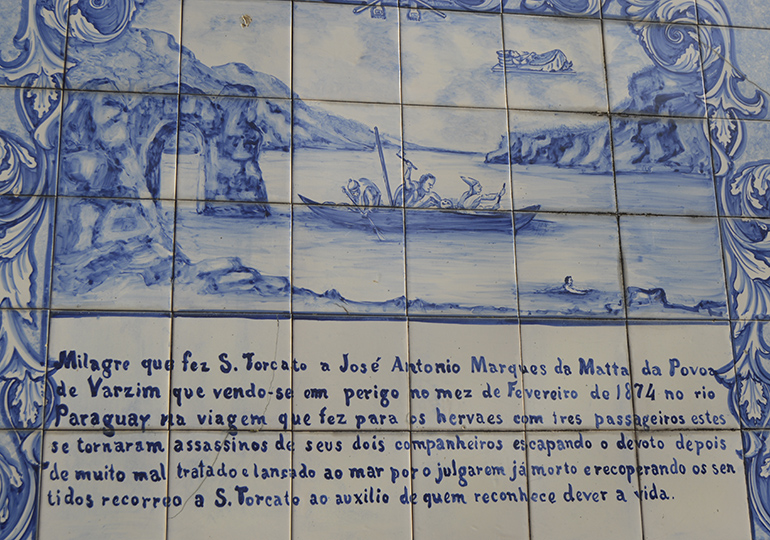 Milagre que fez S. Torcato a José Antonio Marques da Matta, da Povoa
de Varzim que vendo-se em perigo no mez de Fevereiro de 1874 no rio
Paraguay na viagem que fez para os hervaes com tres passageiros estes
se tornaram assassinos de seus dois companheiros escapando o devoto depois
de muito mal tratado e lansado ao mar por o julgarem já morto e recoperando os sen
tidos recorreo a S. Torcato ao auxilio de quem reconhece dever a vida.